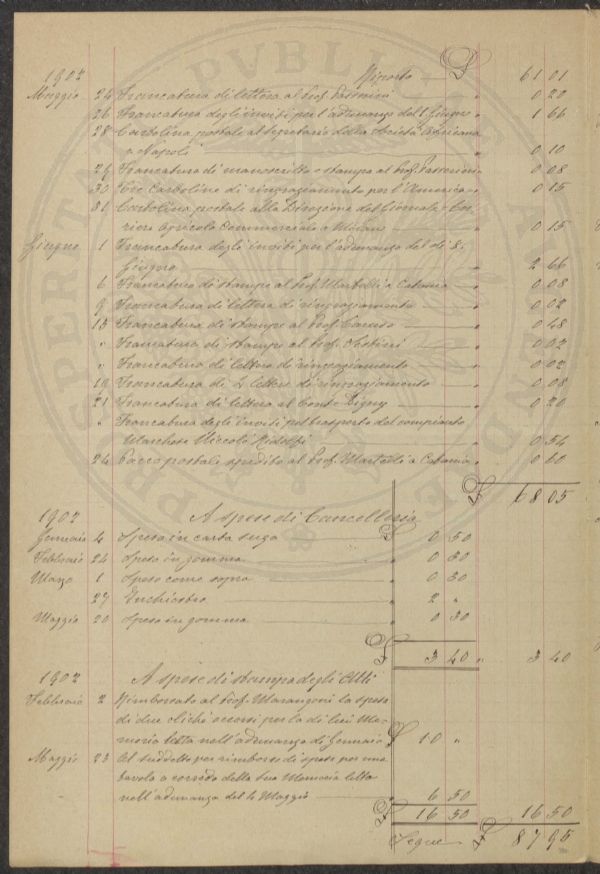 PROSPERITATI PVBLICAE AVGENDAE
1902 Riporto £ 61 01
Maggio 24 Francatura di lettera al Prof. Passerini " 0 20
26 Francatura degli inviti per l'adunanza del 1 Giugno " 1 66
28 Cartolina postale al Segretario della Società Africana
a Napoli " 0 10
29 Francatura di manoscritto e stampa al Prof. Passerini " 0 08
30 Tre Cartoline di ringraziamento per l'America " 0 15
31 Cartolina postale alla Direzione del Giornale Cor-
riere Agricolo Commerciale a Milano " 0 15
Giugno 1 Francatura degli inviti per l'adunanza del dì 8.
Giugno " 2 66
6 Francatura di stampe al Prof. Martelli a Catania " 0 08
9 Francatura di lettera di ringraziamento " 0 02
15 Francatura di stampe al Prof. Caruso " 0 48
" Francatura di stampe al Prof. " 0 02
" Francatura di lettera di ringraziamento " 0 02
19 Francatura di 4 lettere di ringraziamento " 0 08
21 Francatura di lettera al Conte Digny " 0 20
" Francatura degli inviti pel trasporto del compianto
Marchese Niccolò Ridolfi " 0 54
24 Pacco postale spedito al Prof. Martelli a Catania " 0 60
£ 68 05
1902 A spese di Cancelleria
Gennaio 4 Spesa in carta suga £ 0 50
Febbraio 24 Spesa in gomma " 0 30
Marzo 1 Spesa come sopra " 0 30
27 Inchiostro " 2 "
Maggio 20 Spesa in gomma " 0 30
£ 3 40 " 3 40
1902 A spese di stampa degli Atti
Febbraio 2 Rimborsato al Prof. Marangoni la spesa
di due clichè occorsi per la di lui Me-
moria letta nell'adunanza di Gennaio £ 10 "
Maggio 23 Al suddetto per rimborso di spese per una
tavola a corredo della sua Memoria letta
nell'adunanza del 4 Maggio " 6 50
£ 16 50 16 50
Segue £ 87 95